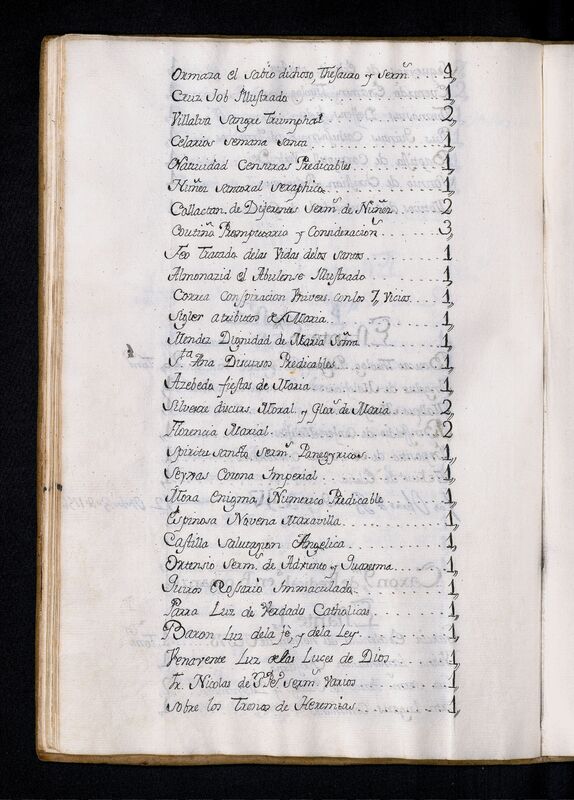 Ormaza el sabio dichoso, Thesauro y Serm.ˢ 4,,
Cruz Job Illustrado 1,,
Villalva Sangre Triumphal 2,,
Celarios semana santa 1,,
Natividad Censuras Predicables 1,,
Nuñez santoral seraphico 1,,
Collactan. de Diferentes serm.ˢ de Nuñez 2,,
Coutiño Promptuario y Consideracion.ˢ 3,,
Feo Tratado delas Vidas delos santos 1,,
Almonazid el Abulense Illustrado 1,,
Correa Conspiracion Univers. con los 7,, Vicios 1,,
Sigler atributos de Maria 1,,
Mendez Dignidad de Maria SSma 1,,
S.ᵗᵃ Ana Discursos Predicables 1,,
Azebedo fiestas de Maria 1,,
Silvere discurs. Moral. y Glor.ˢ de Maria 2,,
Florencia Marial 2,,
Spiritu Sancto Serm.ˢ Panegyricos 1,,
Seyxas Corona Imperial 1,,
Mora Enigma Numerico Predicable 1,,
Espinosa Novena Maravilla 1,,
Castilla Salutazion Angelica 1,,
Ortensio Serm.ˢ de Adviento y Quaresma 1,,
Quiros Rosario Immaculado 1,,
Parra Luz de Verdades Catholicas 1,,
Baron Luz dela fe, y dela Ley 1,,
Venavente Luz delas Luces de Dios 1,,
Fr. Nicolas de serm.ˢ Varios 1,,
Sobre los Trenos de Heremias 1,,